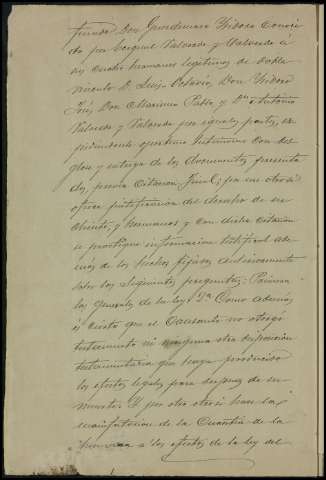 finado Don Gumersindo Ysidoro conoci
do por Ezequiel Valverde y Valverde á
sus cuatro hermanos legítimos de doble
vínculo D. Luis Octavio, Don Ysidoro
José, Don Maximo Pablo y Dn Antonio
Valverde y Valverde por iguales partes, ex
pidiendose oportuno testimonio con des
glose y entrega de los documentos presenta
dos, previa citacion fiscal; por un otrosi
ofrece justificacion del derecho de su
cliente, y hermanos y con dicha citacion
se practique informacion testifical ade
más de los hechos fijados anteriormente
sobre las siguientes preguntas: Primera
las generales de la ley. 2ª Como además
es cierto que el causante no otorgó
testamento ni ninguna otra disposicion
testamentaria que haya producido
los efectos legales para despues de su
muerte. Y por otro otrosi hace la
manifestacion de la cuantia de la
herencia a los efectos de la ley del